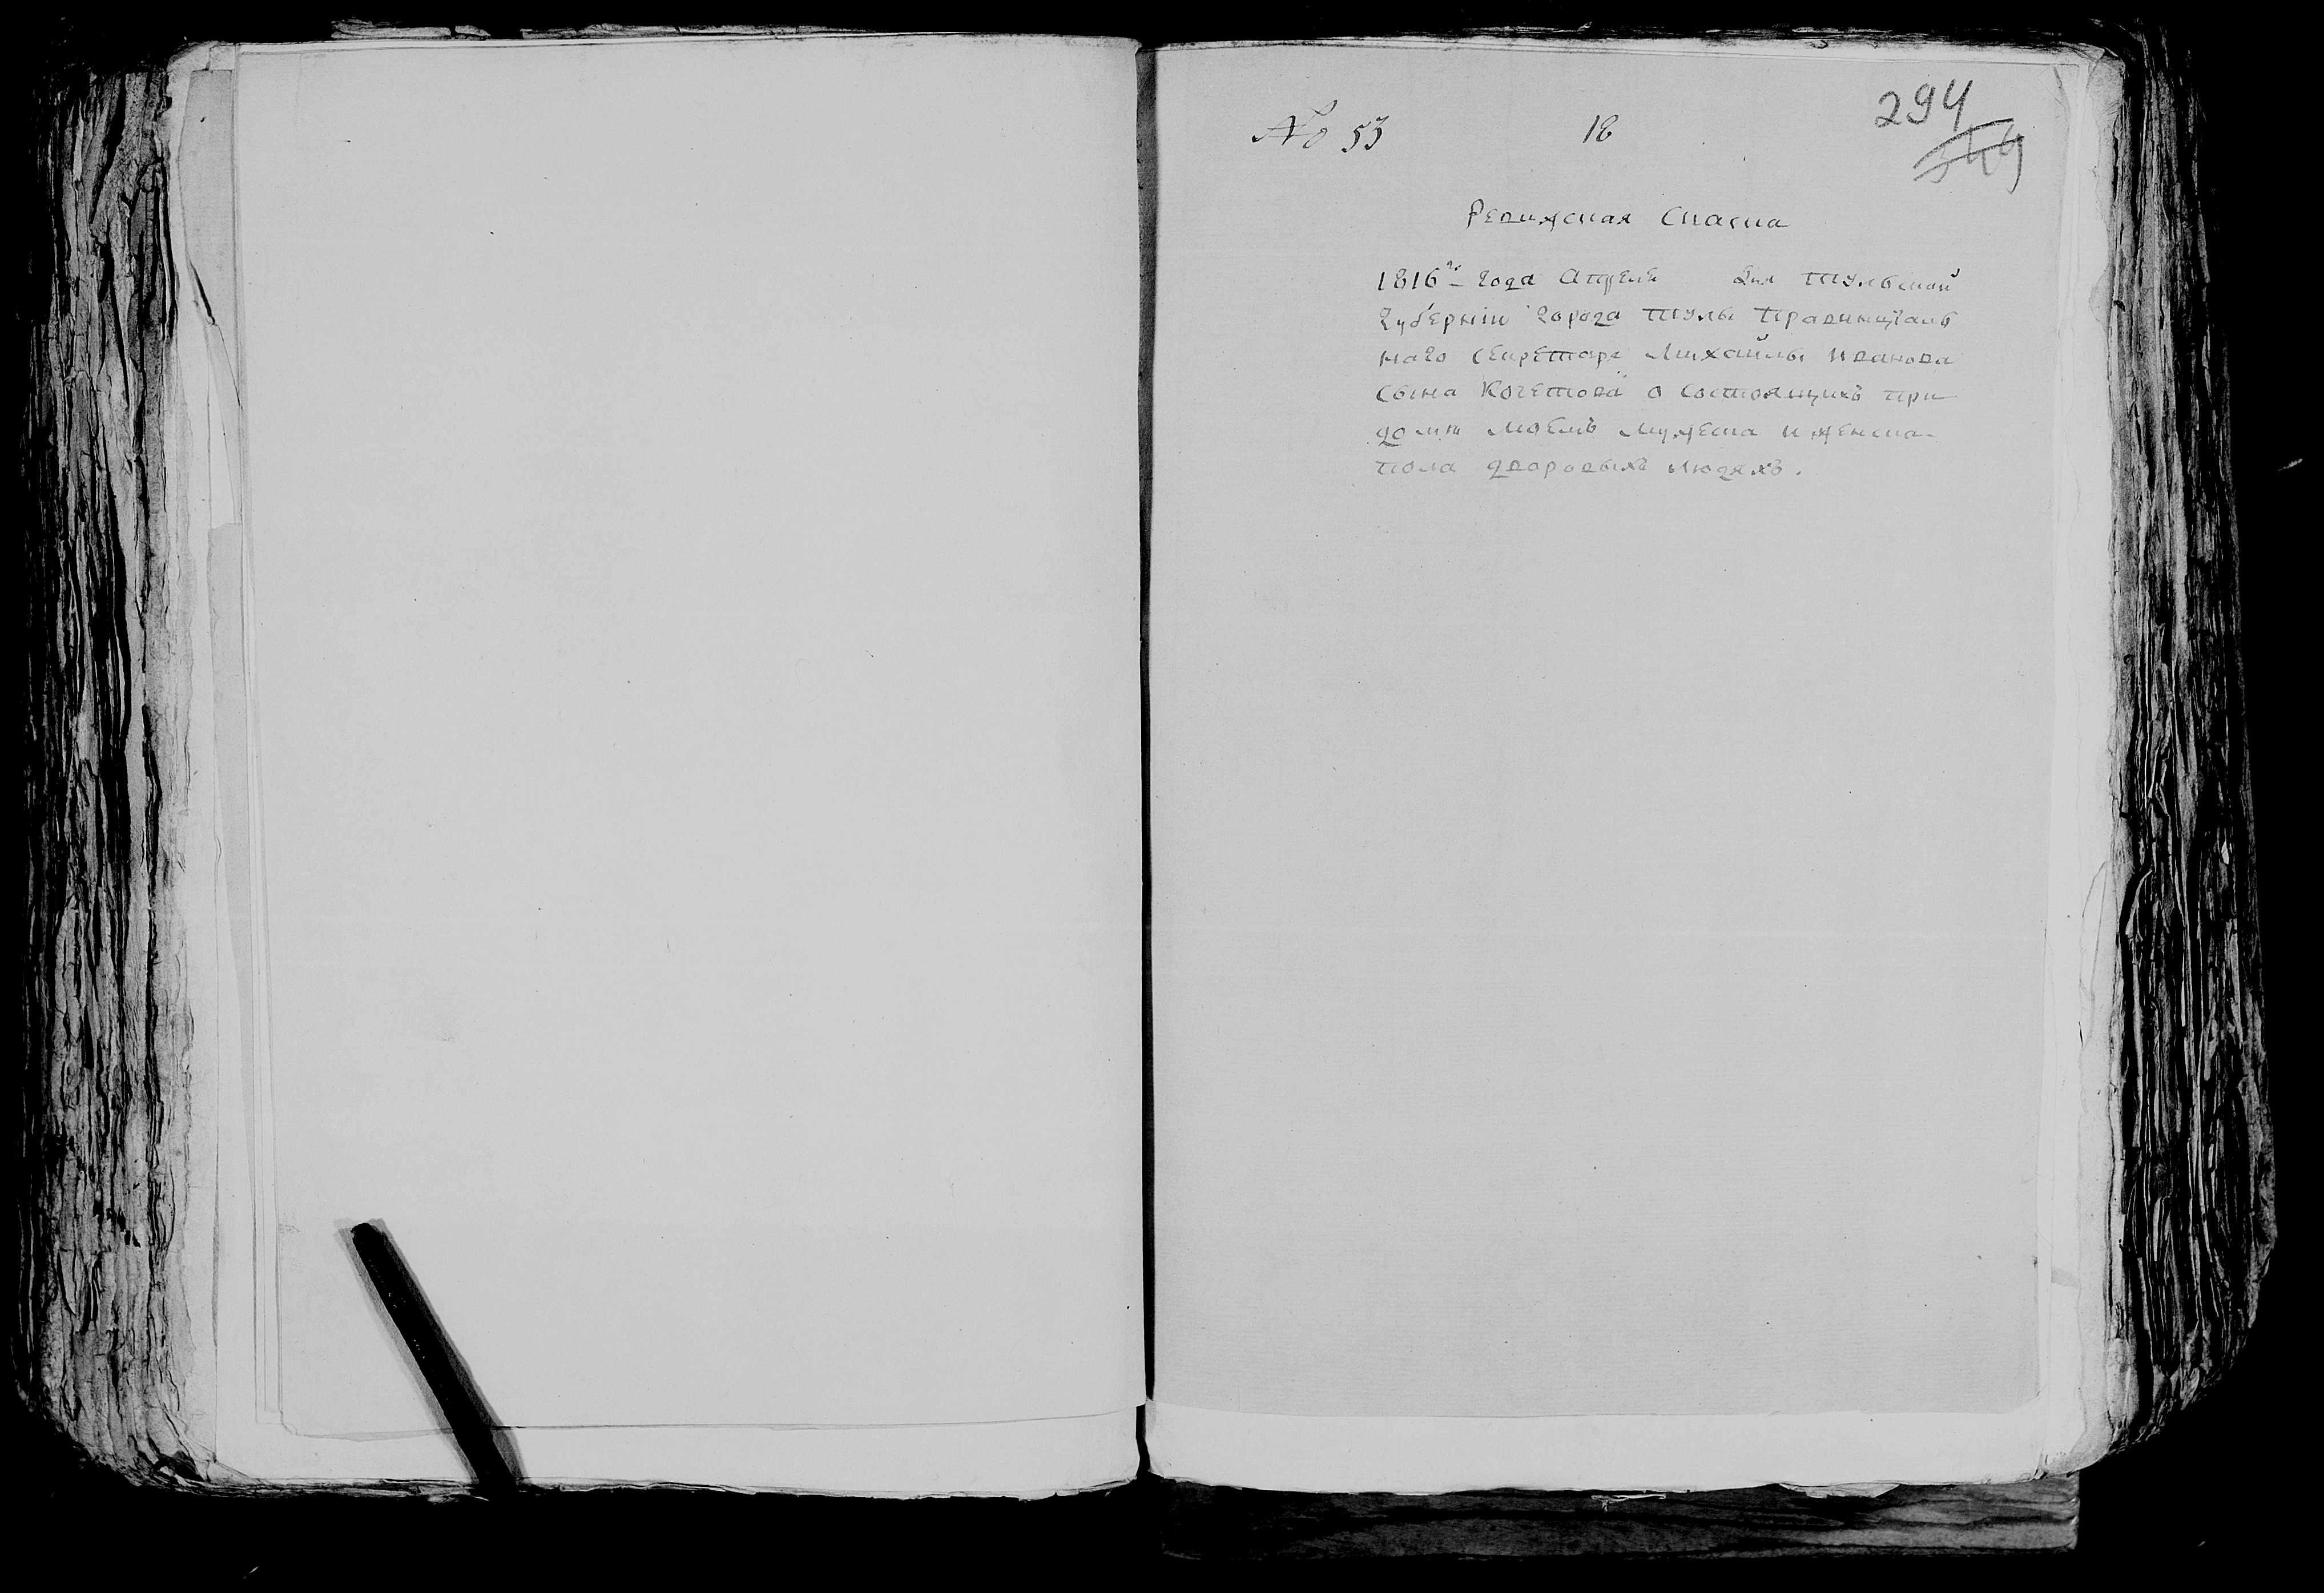 № 53 18 294
Ревижская Скаска
1816го года Апреля дня Тульской
губернiи города Тулы Правинцiаль
наго секретаря Михайлы Иванова
сына Кочетова о состоящихъ при
доме моемъ мужеска и женска
пола дворовыхъ людяхъ.